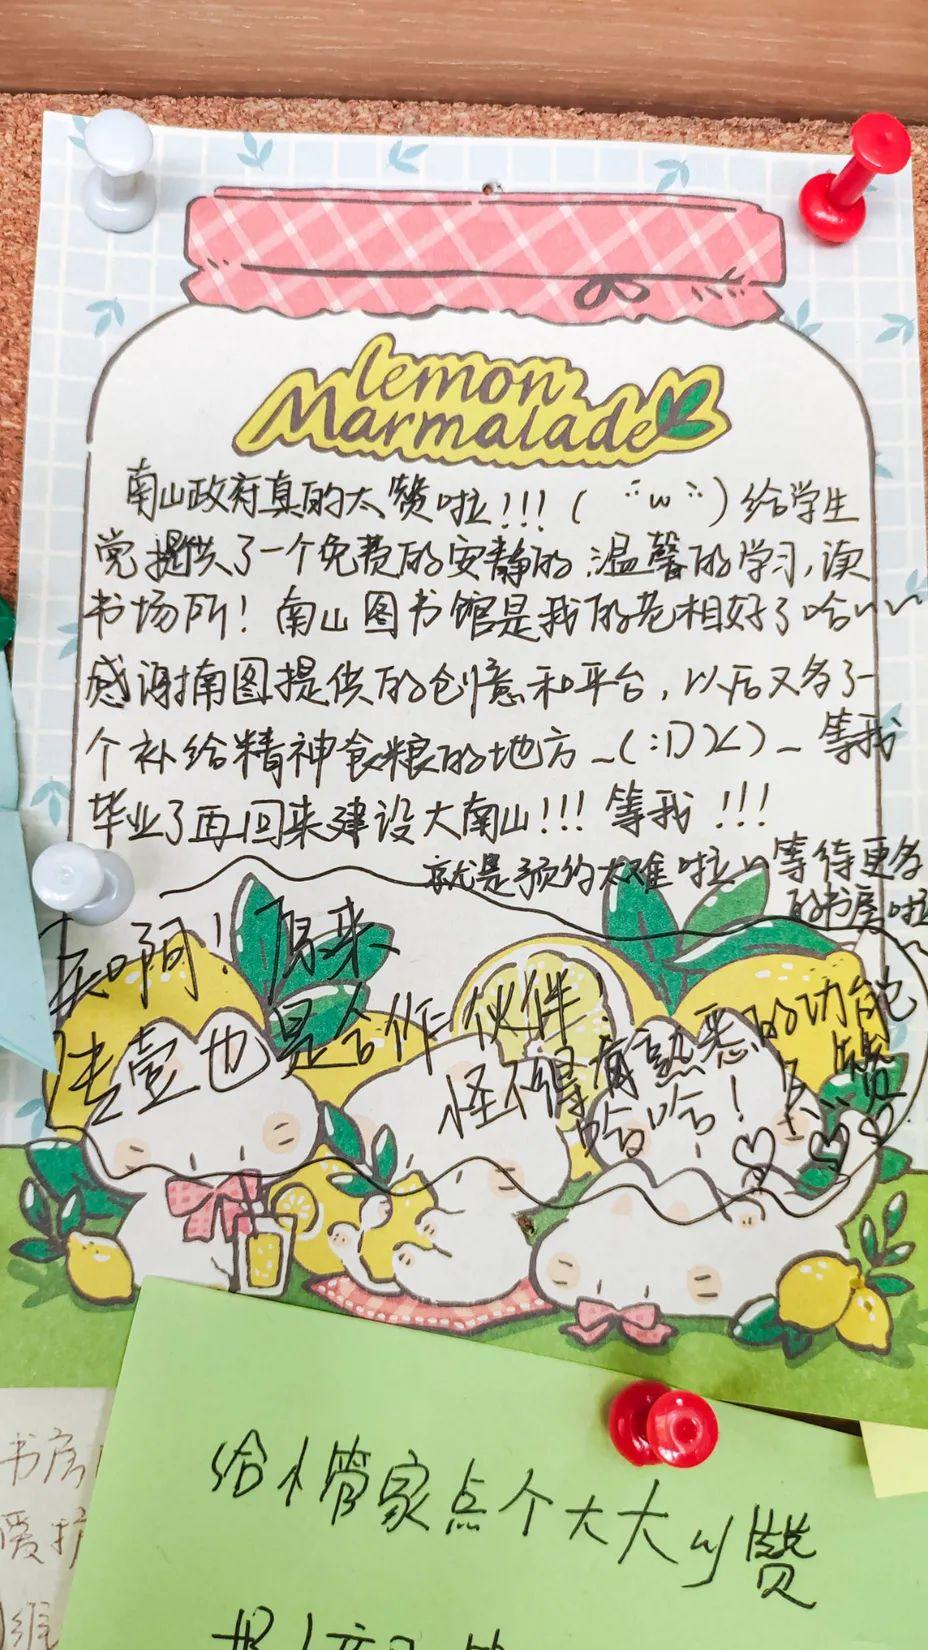 lemon
Marmalade
南山政府真的太赞啦!!!( ¨w¨ )给学生
党提供了一个免费的安静的温馨的学习,读
书场所!南山图书馆是我的老相好了哈~~
感谢南图提供的创意和平台,以后又多了一
个补给精神食粮的地方_(:D)乙)_等我
毕业了再回来建设大南山!!!等我!!!
就是预约太难啦~等待更多
的书屋啦
天啊!原来
壹也是合作伙伴!
怪不得有熟悉的功能
哈哈!太赞 ♡♡♡
给小管家点个大大的赞
书房
爱护
维